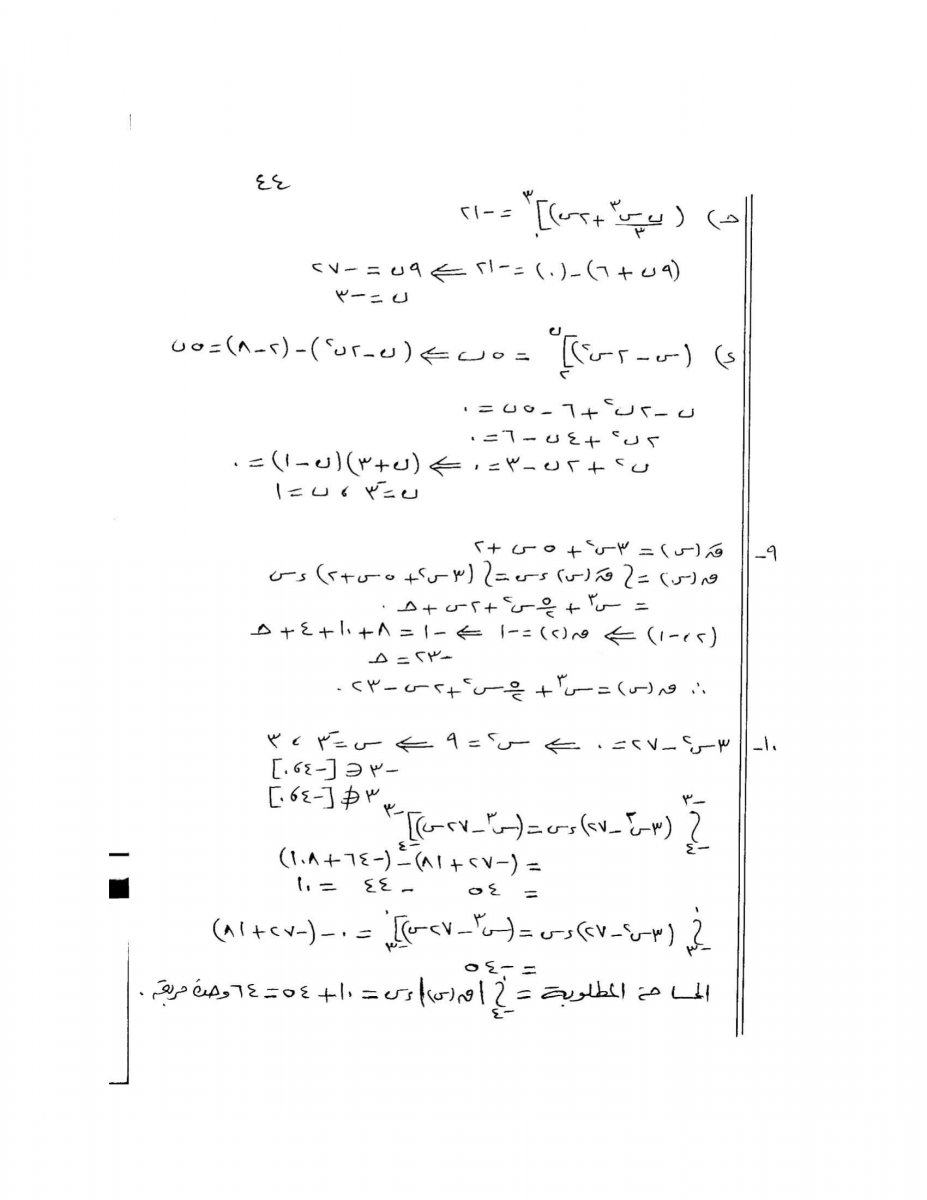 ٤٤
حـ) (ن س^٣/٣ + ٢س)]_٠^٣ = -٢١
(٩ن + ٦) - (٠) = -٢١ ⇐ ٩ن = -٢٧
ن = -٣
د) (س - ٢س^٢)]_٢^ن = ٥ن ⇐ (ن - ٢ن^٢) - (٢ - ٨) = ٥ن
ن - ٢ن^٢ + ٦ - ٥ن = ٠
٢ن^٢ + ٤ن - ٦ = ٠
ن^٢ + ٢ن - ٣ = ٠ ⇐ (ن + ٣)(ن - ١) = ٠
ن = -٣ ، ن = ١
٩- قَ(س) = ٣س^٢ + ٥س + ٢
ق(س) = ∫ قَ(س) ءس = ∫ (٣س^٢ + ٥س + ٢) ءس
= س^٣ + ٥/٢ س^٢ + ٢س + حـ .
(٢، -١) ⇐ ق(٢) = -١ ⇐ -١ = ٨ + ١٠ + ٤ + حـ
-٢٣ = حـ
∴ ق(س) = س^٣ + ٥/٢ س^٢ + ٢س - ٢٣ .
١٠- ٣س^٢ - ٢٧ = ٠ ⇐ س^٢ = ٩ ⇐ س = -٣ ، ٣
-٣ ∈ [-٤، ٠]
٣ ∉ [-٤، ٠]
∫_-٤^-٣ (٣س^٢ - ٢٧) ءس = (س^٣ - ٢٧س)]_-٤^-٣
= (-٢٧ + ٨١) - (-٦٤ + ١٠٨)
= ٥٤ - ٤٤ = ١٠
∫_-٣^٠ (٣س^٢ - ٢٧) ءس = (س^٣ - ٢٧س)]_-٣^٠ = ٠ - (-٢٧ + ٨١)
= -٥٤
المساحة المطلوبة = ∫_-٤^٠ |ق(س)| ءس = ١٠ + ٥٤ = ٦٤ وحدة مربعة .